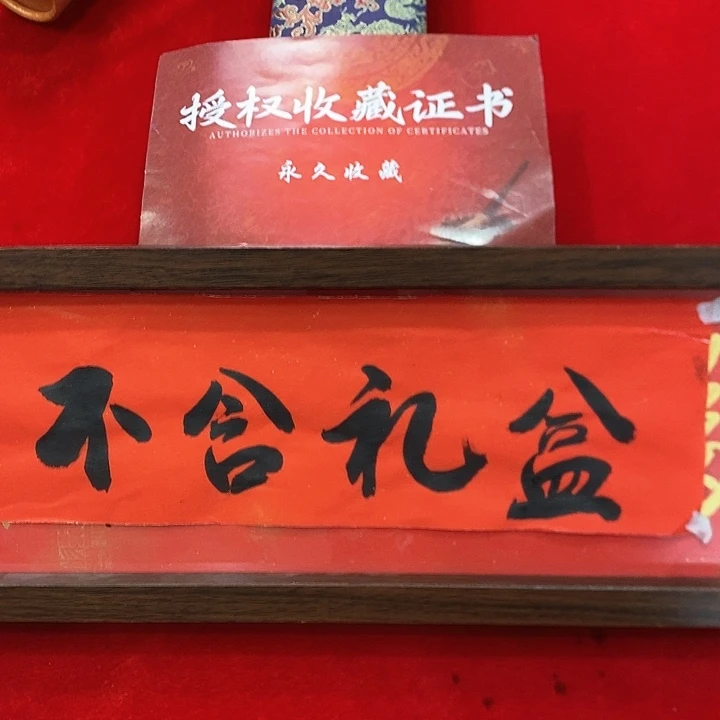 授权收藏证书
AUTHORIZES THE COLLECTION OF CERTIFICATES
永久收藏
不含礼盒